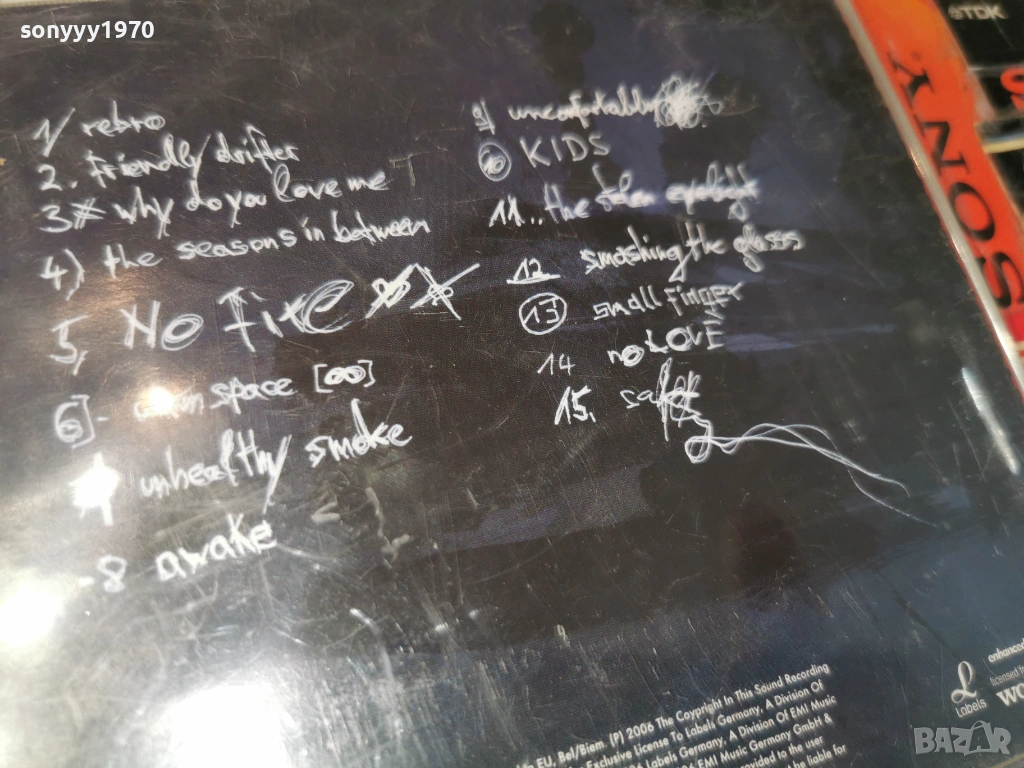 sonyyy1970
TDK
SONY
1/ retro
2. friendly drifter
3 why do you love me
4) the seasons in between
5, No Fire
6]- space [∞]
unhealthy smoke
-8 awake
9) uncomfortably
10 KIDS
11... the
12 smashing the glasses
13 small finger
14 no LOVE
15.
EU, Bel/Biem. (P) 2006 The Copyright In This Sound Recording
Exclusive License To Labels Germany, A Division Of
Labels Germany, A Division Of EMI Music
EMI Music Germany GmbH &
provided to the user
liable for
enhanced
licensed
Labels
BAZAR